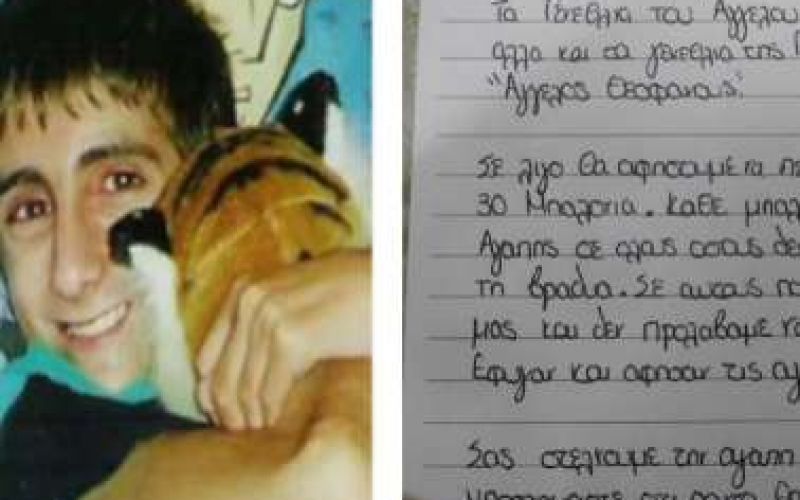 Τα Γενεθλια του Αγγελου
αλλα και τα γενεθλια της
"Αγγελος Θεοφανους"
Σε λιγο θα αφησουμε τα
30 Μπαλονια. Καθε μπαλ
Αγαπης σε ολους οσους δε
τη βραδια. Σε αυτους πο
μας και δεν προλαβαμε να
Εφυγαν και αφησαν τις αγ
Σας στελνουμε την αγαπη